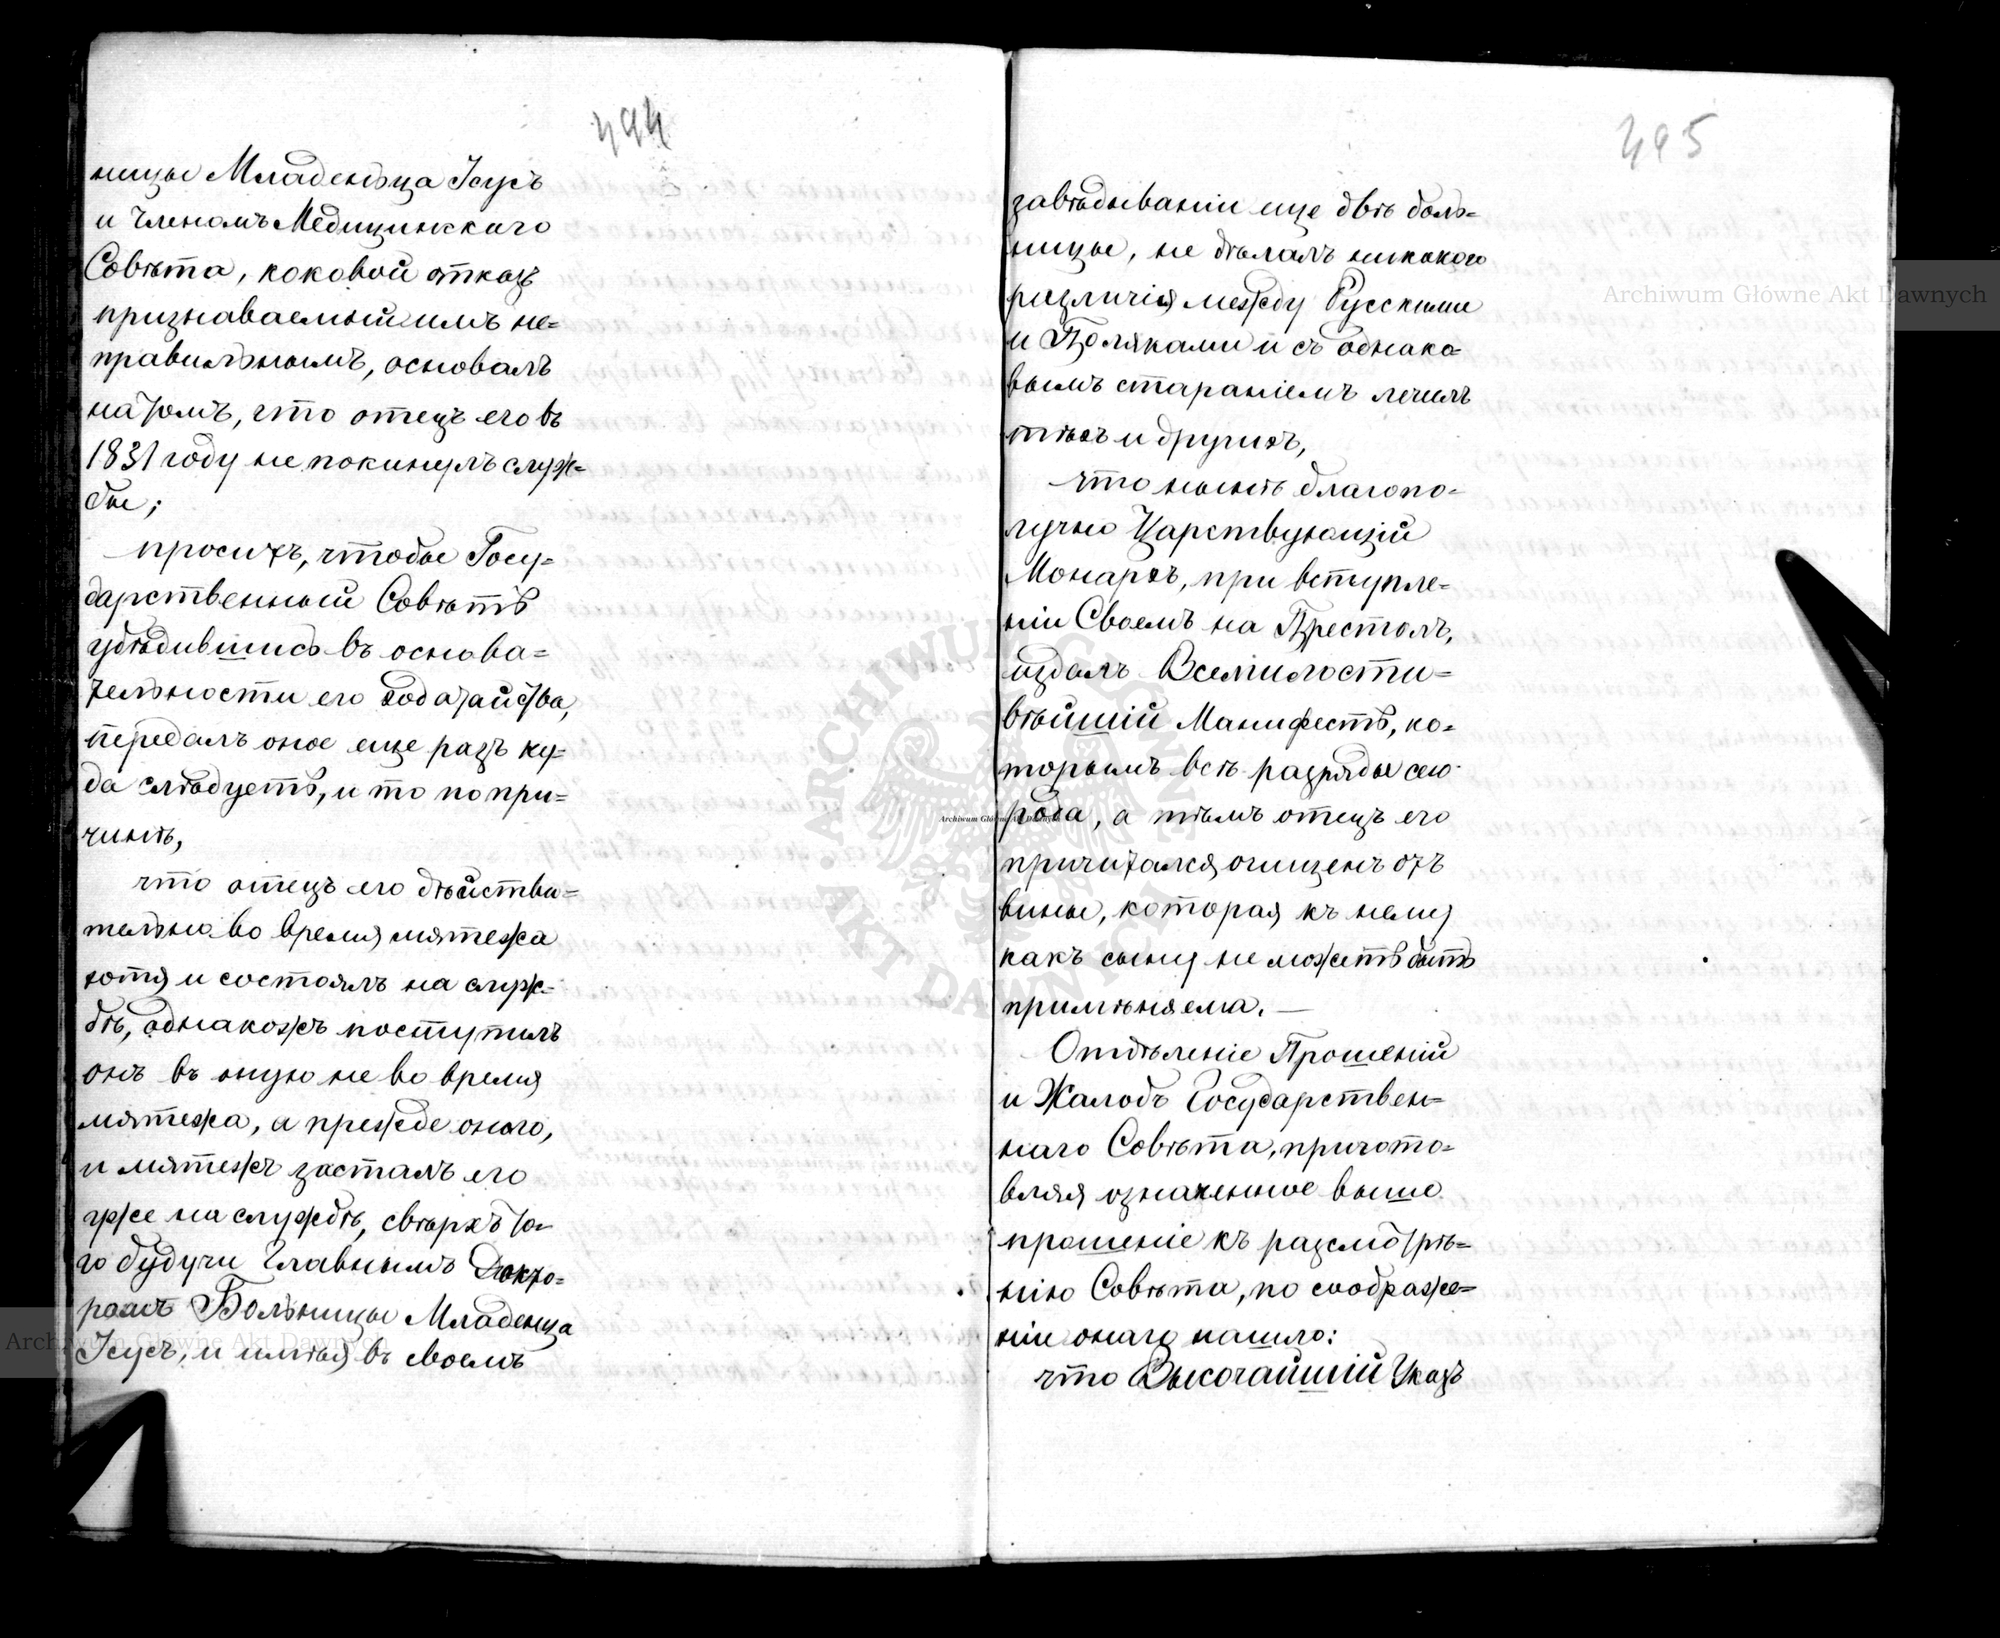 494
ницы Младенъца Іисусъ
и Членомъ Медицинскаго
Совѣта, каковой отказъ
признаваемый имъ не=
правильнымъ, основалъ
на томъ, что отецъ его въ
1831 году не покинулъ служ=
бы;
проситъ, чтобы Госу=
дарственный Совѣтъ
убѣдившись въ основа=
тельности его ходатайства,
передалъ оное еще разъ ку=
да слѣдуетъ, и то по при=
чинѣ,
что отецъ его дѣйстви=
тельно во время мятежа
хотя и состоялъ на служ=
бѣ, однакожъ поступилъ
онъ въ оную не во время
мятежа, а прежде онаго,
и мятежъ засталъ его
уже на службѣ, сверхъ то=
го будучи Главнымъ Докто=
ромъ Больницы Младенца
Іисусъ, и имѣя въ своемъ
495
завѣдываніи еще двѣ боль=
ницы, не дѣлалъ никакого
различія между Русскими
и Поляками и съ однако=
вымъ стараніемъ лечилъ
тѣхъ и другихъ,
что нынѣ благопо=
лучно Царствующій
Монархъ, при вступле=
ніи Своемъ на Престолъ,
издалъ Всемилости=
вѣйшій Манифестъ, ко=
торымъ всѣ разряды сего
рода, а тѣмъ отецъ его
причитался очищенъ отъ
вины, которая къ нему
какъ сыну не можетъ быть
примѣняема. —
Отдѣленіе Прошеній
и Жалобъ Государствен=
наго Совѣта, пригото=
вляя означенное выше
прошеніе къ разсмотрѣ=
нію Совѣта, по соображе=
ніи онаго нашло:
что Высочайшій Указъ
Archiwum Główne Akt Dawnych
Archiwum Główne Akt Dawnych
Archiwum Główne Akt Dawnych
ARCHIWUM GŁÓWNE AKT DAWNYCH